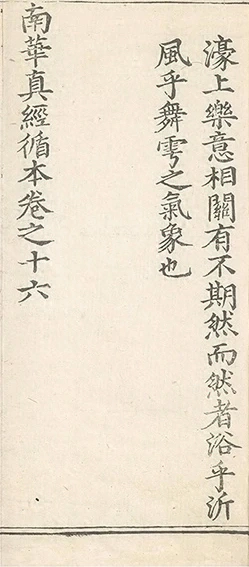 濠上樂意相關有不期然而然者浴乎沂
風乎舞雩之氣象也
南華真經循本卷之十六